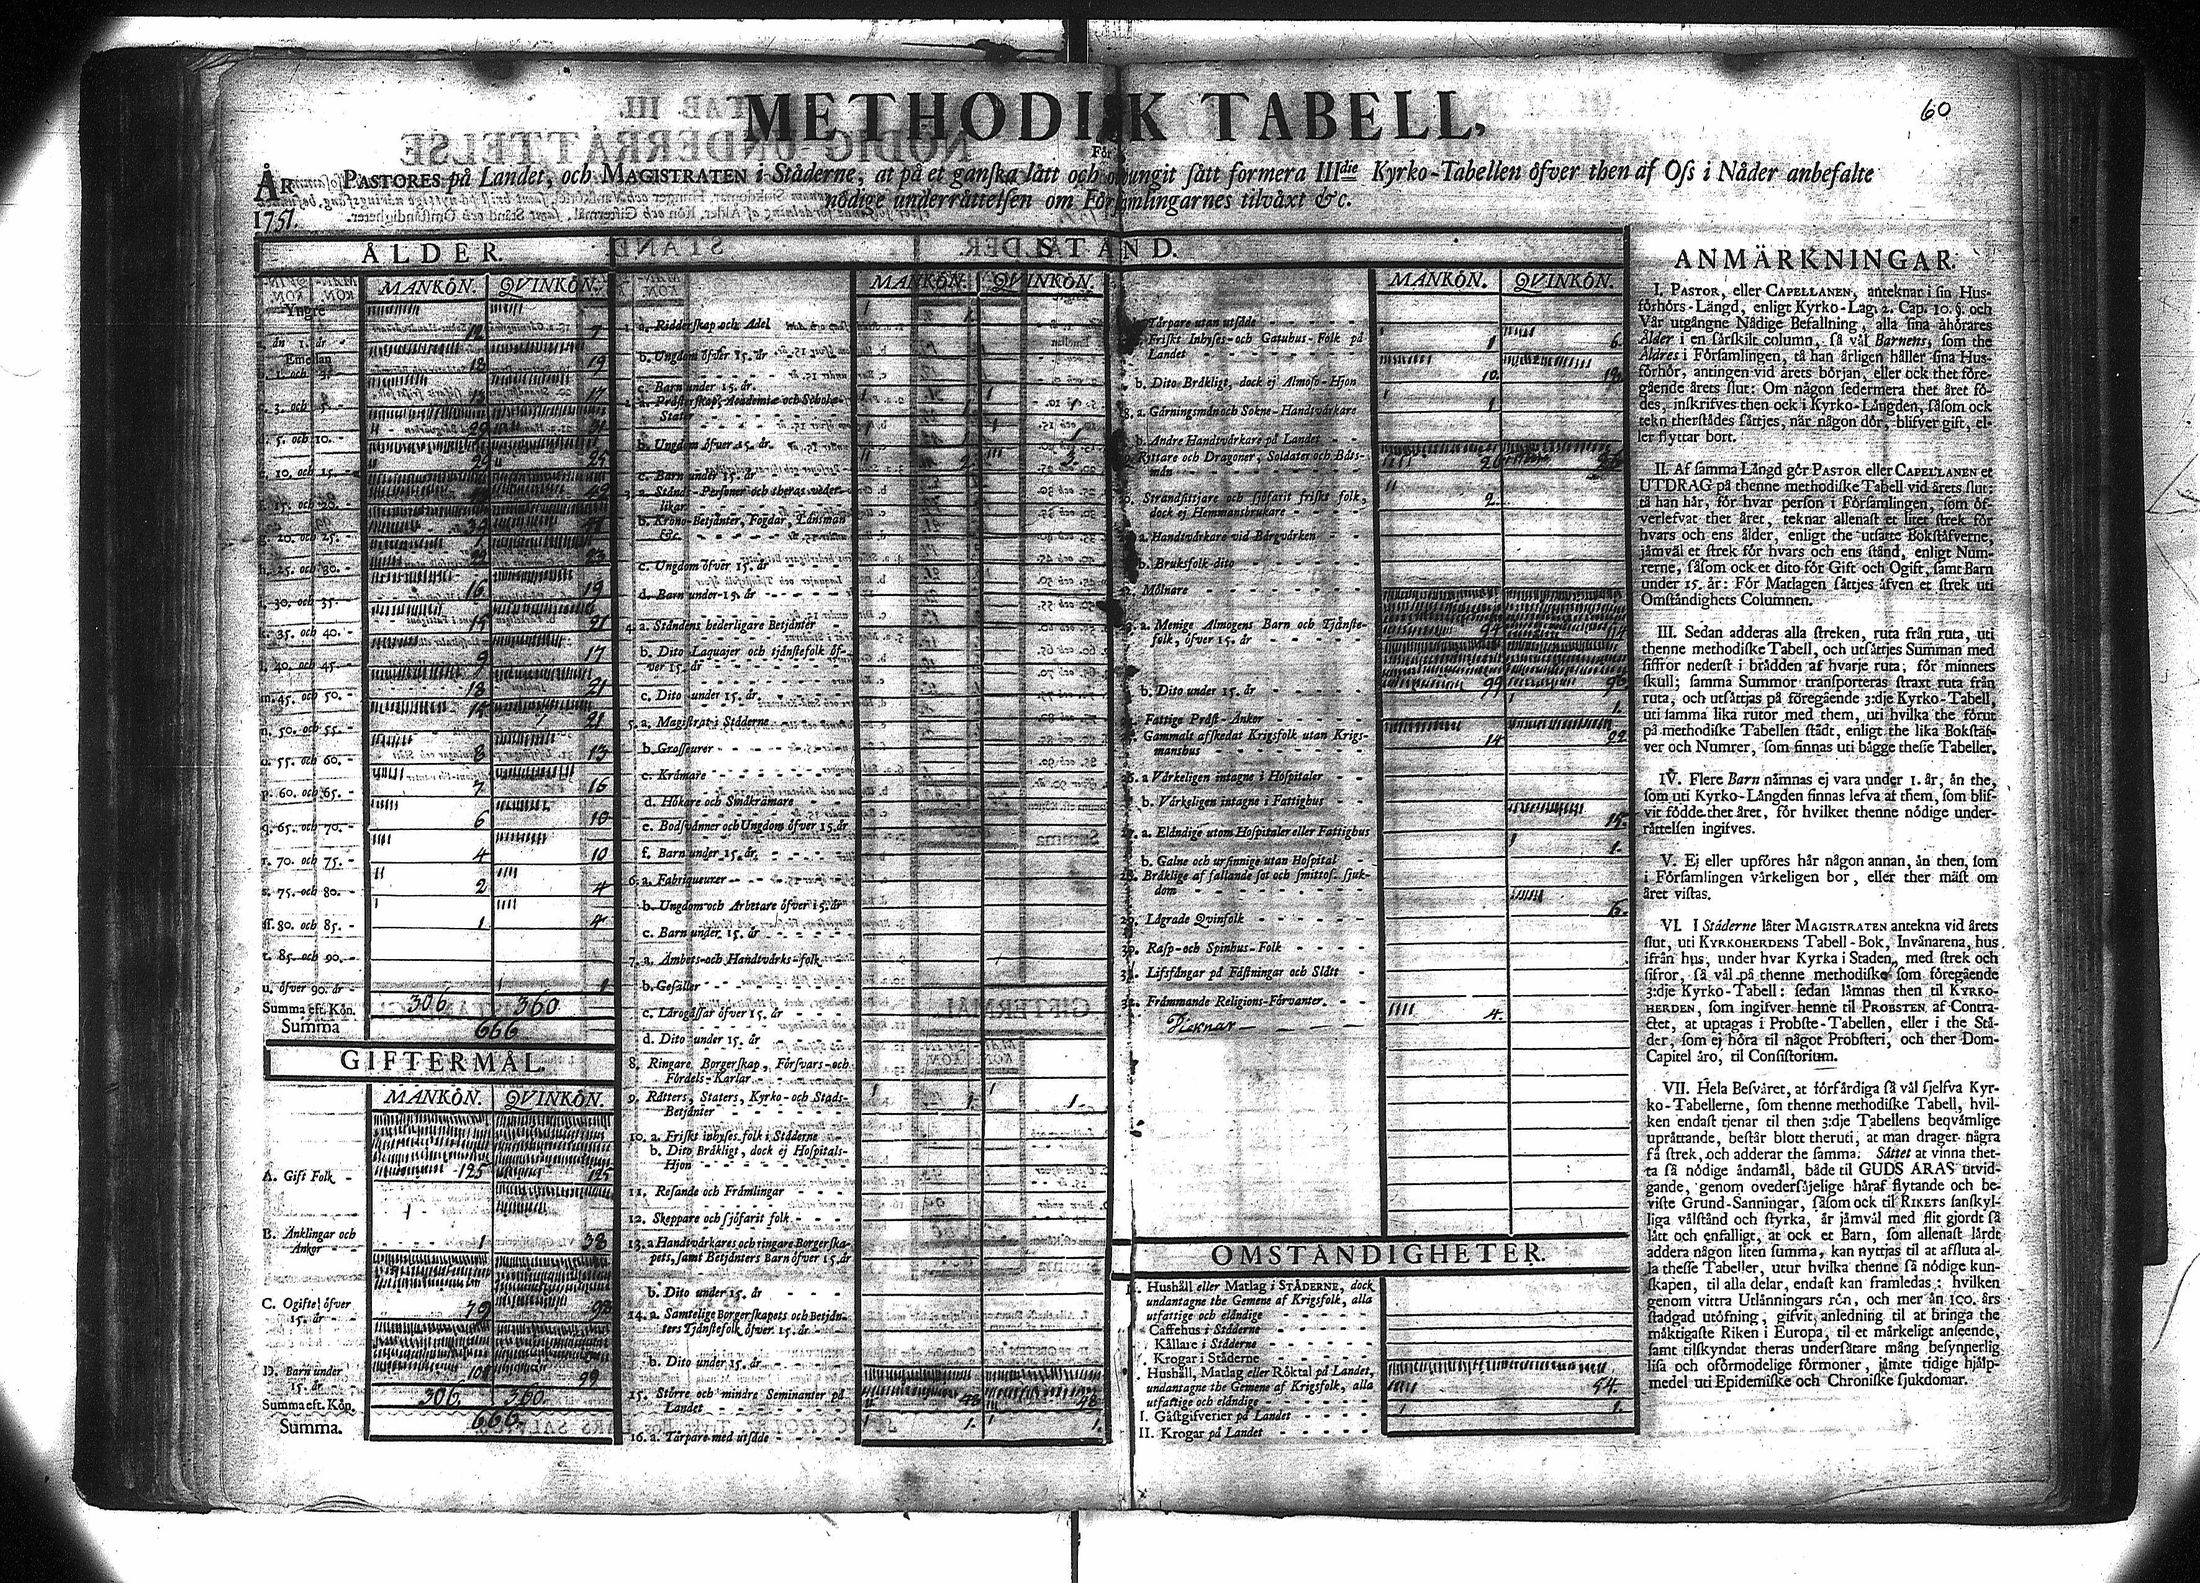 60
METHODISK TABELL,
För
ÅR PASTORES på Landet, och MAGISTRATEN i Städerne, at på et ganska lätt och otvungit sätt formera IIIdie Kyrko-Tabellen öfver then af Oss i Nåder anbefalte
1751. nödige underrättelsen om Församlingarnes tilväxt &c.
ÅLDER.
MANKÖN. QVINKÖN.
Yngre
än 1. år 12 7
Emellan
1. och 3. 18 19
3. och 5. 13 17
5. och 10. 29 31
10. och 15. 29 25
15. och 20.
20. och 25.
25. och 30. 22 23
30. och 35. 16 19
35. och 40. 15 21
40. och 45. 9 17
m. 45. och 50. 18 21
n. 50. och 55. 21
o. 55. och 60. 8 13
p. 60. och 65. 7 16
q. 65. och 70. 6 10
r. 70. och 75. 4 10
s. 75. och 80. 2 4
ss. 80. och 85. 1 4
t. 85. och 90.
u. öfver 90. år 1
Summa eft. Kön. 306 360
Summa 666
GIFTERMÅL.
MANKÖN. QVINKÖN.
A. Gift Folk 125 125
B. Änklingar och
Änkor 1 38
C. Ogifte öfver
15. år 79 98
D. Barn under
15. år 101 99
Summa eft. Kön. 306. 360.
Summa. 666.
STÅND.
MANKÖN. QVINKÖN.
1. a. Ridderskap och Adel 1.
b. Ungdom öfver 15. år
c. Barn under 15. år
a. Prästerskap, Academiæ och Schole-
Stater 1.
b. Ungdom öfver 15. år 1
c. Barn under 15. år
3. a. Stånds-Personer och theras veder-
likar
b. Krono-Betjänter, Fogdar, Länsmän
&c.
c. Ungdom öfver 15. år
d. Barn under 15. år
4. a. Ståndens hederligare Betjänter
b. Dito Laquajer och tjänstefolk öf-
ver 15. år
c. Dito under 15. år
5. a. Magistrat i Städerne
b. Grosseurer
c. Krämare
d. Hökare och Småkrämare
e. Bodsvänner och Ungdom öfver 15. år
f. Barn under 15. år
6. a. Fabriqueurer
b. Ungdom och Arbetare öfver 15. år
c. Barn under 15. år
7. a. Ämbets- och Handtvärks-folk
b. Gesäller
c. Lärogåssar öfver 15. år
d. Dito under 15. år
8. Ringare Borgerskap, Försvars- och
Fördels-Karlar
9. Rätters, Staters, Kyrko- och Stads-
Betjänter 1. 1.
10. a. Friskt inhyses folk i Städerne
b. Dito Bräkligt, dock ej Hospitals-
Hjon
11. Resande och Främlingar
12. Skeppare och sjöfarit folk
13. a. Handtvärkares och ringare Borgerska-
pets, samt Betjänters Barn öfver 15. år
b. Dito under 15. år
14. a. Samtelige Borgerskapets och Betjän-
ters Tjänstefolk öfver 15. år
b. Dito under 15. år
15. Större och mindre Seminanter på
Landet 48 48
16. a. Tårpare med utsäde 1. 1.
MANKÖN. QVINKÖN.
Tårpare utan utsäde
Friskt Inhyses- och Gatuhus-Folk på
Landet 1 6
b. Dito Bräkligt, dock ej Almoso-Hjon 10.
18. a. Gärningsmän och Sokne-Handtvärkare 1
b. Andre Handtvärkare på Landet
Ryttare och Dragoner, Soldater och Båts-
män 20
20. Strandsittjare och sjöfarit friskt folk,
dock ej Hemmansbrukare 2.
a. Handtvärkare vid Bärgvärken
b. Bruksfolk dito
22. Mölnare
a. Menige Almogens Barn och Tjänste-
folk, öfver 15. år 94 114
b. Dito under 15. år 99 96
Fattige Präst-Änkor 1.
Gammalt afskedat Krigsfolk utan Krigs-
manshus 14 22
26. a. Värkeligen intagne i Hospitaler
b. Värkeligen intagne i Fattighus
27. a. Eländige utom Hospitaler eller Fattighus 15.
b. Galne och ursinnige utan Hospital 1.
28. Bräklige af fallande sot och smittos. sjuk-
dom
29. Lägrade Qvinfolk 6.
30. Rasp- och Spinhus-Folk
31. Lifsfångar på Fästningar och Slått
32. Främmande Religions-Förvanter.
4.
OMSTÄNDIGHETER.
Hushåll eller Matlag i STÄDERNE, dock
undantagne the Gemene af Krigsfolk, alla
utfattige och eländige
Caffehus i Städerne
Källare i Städerne
Krogar i Städerne
Hushåll, Matlag eller Röktal på Landet,
undantagne the Gemene af Krigsfolk, alla
utfattige och eländige 54.
I. Gästgifverier på Landet 1.
II. Krogar på Landet
ANMÄRKNINGAR.
I. PASTOR, eller CAPELLANEN, anteknar i sin Hus-
förhörs-Längd, enligt Kyrko-Lag. 2. Cap. 10. §. och
Vår utgångne Nådige Befallning, alla sina åhörares
Ålder i en särskilt column, så väl Barnens, som the
Äldres i Församlingen, tå han årligen håller sina Hus-
förhör, antingen vid årets början, eller ock thet före-
gående årets slut: Om någon sedermera thet året fö-
des, inskrifves then ock i Kyrko-Längden, såsom ock
tekn therstädes sättjes, när någon dör, blifver gift, el-
ler flyttar bort.
II. Af samma Längd gör PASTOR eller CAPELLANEN et
UTDRAG på thenne methodiske Tabell vid årets slut:
tå han här, för hvar person i Församlingen, som öf-
verlefvat thet året, teknar allenast et litet strek för
hvars och ens ålder, enligt the utsatte Bokstäfverne,
jämväl et strek för hvars och ens stånd, enligt Num-
rerne, såsom ock et dito för Gift och Ogift, samt Barn
under 15. år: För Matlagen sättjes äfven et strek uti
Omständighets Columnen.
III. Sedan adderas alla streken, ruta från ruta, uti
thenne methodiske Tabell, och utsättjes Summan med
siffror nederst i brädden af hvarje ruta; för minnets
skull; samma Summor transporteras straxt ruta från
ruta, och utsättjas på föregående 3:dje Kyrko-Tabell,
uti samma lika rutor med them, uti hvilka the förut
på methodiske Tabellen städt, enligt the lika Bokstäf-
ver och Numrer, som finnas uti bägge thesse Tabeller.
IV. Flere Barn nämnas ej vara under 1. år, än the,
som uti Kyrko-Längden finnas lefva af them, som blif-
vit födde thet året, för hvilket thenne nödige under-
rättelsen ingifves.
V. Ej eller upföres här någon annan, än then, som
i Församlingen värkeligen bor, eller ther mäst om
året vistas.
VI. I Städerne låter MAGISTRATEN antekna vid årets
slut, uti KYRKOHERDENS Tabell-Bok, Invånarena, hus
ifrån hus, under hvar Kyrka i Staden, med strek och
sifror, så väl på thenne methodiske som föregående
3:dje Kyrko-Tabell: sedan lämnas then til KYRKO-
HERDEN, som ingifver henne til PROBSTEN af Contra-
ctet, at uptagas i Probste-Tabellen, eller i the Stä-
der, som ej höra til något Probsteri, och ther Dom-
Capitel äro, til Consistorium.
VII. Hela Besväret, at förfärdiga så väl sjelfva Kyr-
ko-Tabellerne, som thenne methodiske Tabell, hvil-
ken endast tjenar til then 3:dje Tabellens beqvämlige
uprättande, består blott theruti, at man drager några
få strek, och adderar the samma. Sättet at vinna thet-
ta så nödige ändamål, både til GUDS ÄRAS utvid-
gande, genom ovedersäjelige häraf flytande och be-
viste Grund-Sanningar, såsom ock til RIKETS sanskyl-
liga välstånd och styrka, är jämväl med flit gjordt så
lätt och enfalligt, at ock et Barn, som allenast lärdt
addera någon liten summa, kan nyttjas til at afsluta al-
la thesse Tabeller, utur hvilka thenne så nödige kun-
skapen, til alla delar, endast kan framledas: hvilken
genom vittra Utlänningars rön, och mer än 100. års
stadgad utöfning, gifvit anledning til at bringa the
mäktigaste Riken i Europa, til et märkeligt anseende,
samt tilskyndat theras undersåtare mång besynnerlig
lisa och oförmodelige förmoner, jämte tidige hjälp-
medel uti Epidemiske och Chroniske sjukdomar.